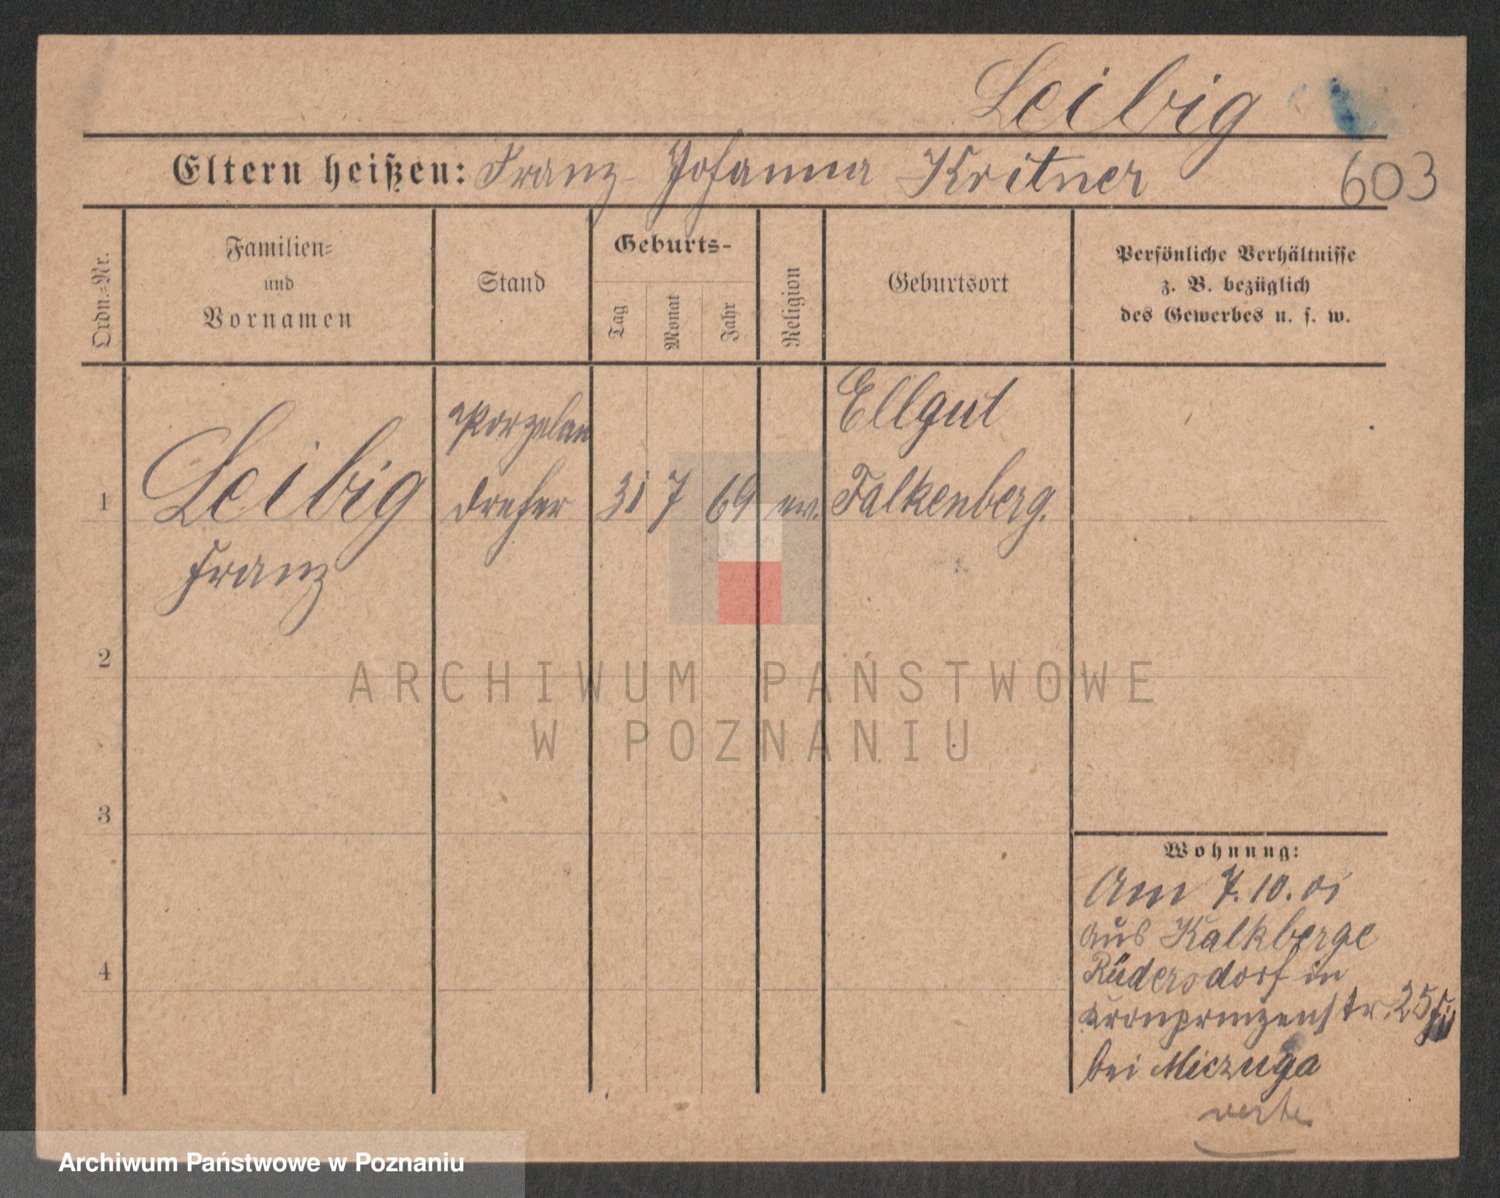 Leibig
Eltern heißen: Franz - Johanna Kritner
603
Ordn.=Nr.
Familien=
und
Vornamen
Stand
Geburts-
Tag
Monat
Jahr
Religion
Geburtsort
Persönliche Verhältnisse
z. B. bezüglich
des Gewerbes u. s. w.
1
Leibig
Franz
Porzelan
dreher
31 7 69 ev.
Ellgut
Falkenberg.
2
3
4
ARCHIWUM PAŃSTWOWE
W POZNANIU
Wohnung:
Am 7.10.01
aus Kalkberge
Rüdersdorf in
Kronprinzenstr. 25
bei Miczuga
Archiwum Państwowe w Poznaniu